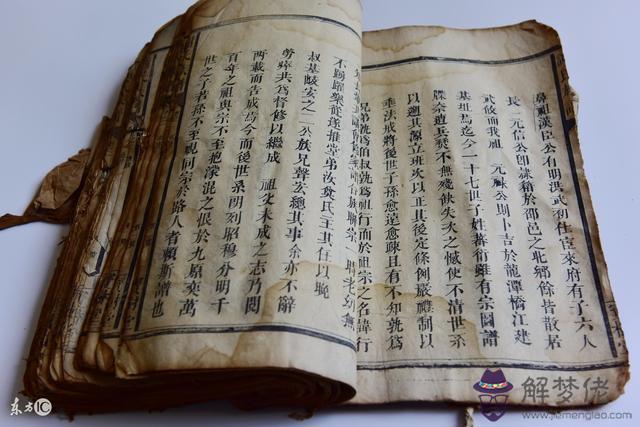 鼻祖漢臣公有明洪武初仕宦來府有子六人
長 元信公卽隸籍於邵邑之北鄉餘皆散居
武攸而我祖 元祿公則卜吉於龍潭橋江建
基址焉迄今一十七世子姓蕃衍雖有宗圖譜
牒奈遭兵燹不無殘缺失次之憾使不清世系
以遡其源立班次以正其後定條例嚴禮制以
垂法戒將後世子孫愈遠愈疎且有不知孰為
兄弟孰為伯叔孰為祖行而於祖宗之名諱行
時老幼無
不踴躍樂從遂推堂弟汝氏主其任以晚
叔基安之二公族兄聲總其事余亦不辭
勞瘁共為督修以繼成 祖父未成之志乃閱
兩載而告成焉今而後世系朗列昭穆分明千
百年之祖與宗不至抱濛混之恨於九原奕萬
世之子若孫不至視同宗於路人者賴斯譜也
东方IC
解梦佬
www.jiemenglao.com